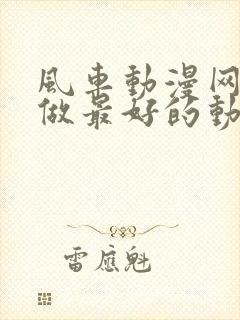 風車動漫网
做最好的動
雷應魁